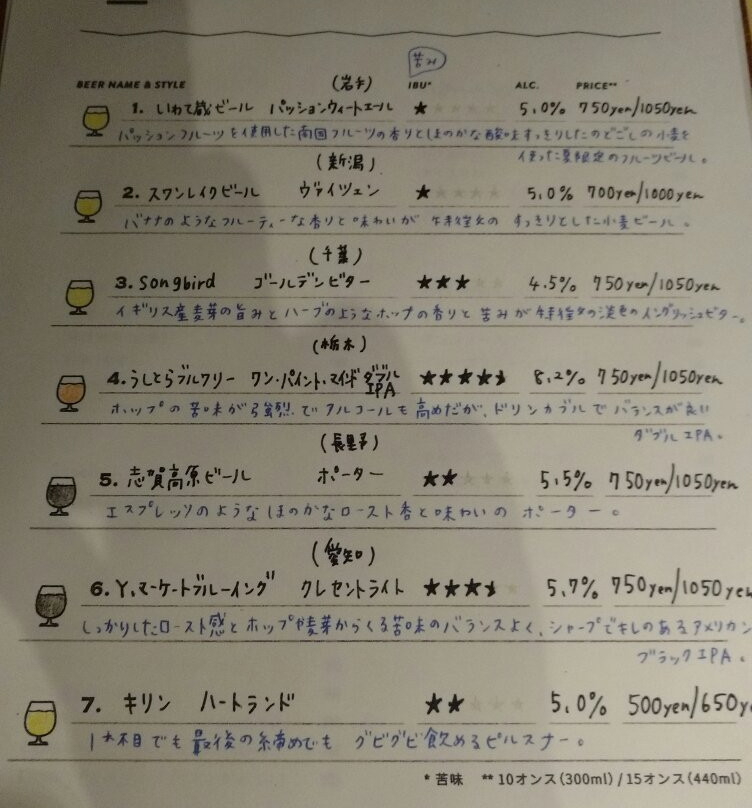 苦み
BEER NAME & STYLE (岩手) IBU* ALC. PRICE**
1. いわて蔵ビール パッションウィートエール ★★★★★ 5.0% 750yen/1050yen
パッションフルーツを使用した南国フルーツの香りとほのかな酸味すっきりしたのどごしの小麦を
使った夏限定のフルーツビール。
(新潟)
2. スワンレイクビール ヴァイツェン ★★★★★ 5.0% 700yen/1000yen
バナナのようなフルーティーな香りと味わいが特徴の すっきりとした小麦ビール。
(千葉)
3. Songbird ゴールデンビター ★★★★★ 4.5% 750yen/1050yen
イギリス産麦芽の旨みとハーブのようなホップの香りと苦みが特徴の淡色のイングリッシュビター。
(栃木)
4. うしとらブルワリー ワン・パイント・マインド ダブル ★★★★★ 8.2% 750yen/1050yen
IPA
ホップの苦味が強烈でアルコールも高めだが、ドリンカブルでバランスが良い
ダブルIPA。
(長野)
5. 志賀高原ビール ポーター ★★★★★ 5.5% 750yen/1050yen
エスプレッソのようなほのかなロースト香と味わいのポーター。
(愛知)
6. Y.マーケットブルーイング クレセントライト ★★★★★ 5.7% 750yen/1050yen
しっかりしたロースト感とホップや麦芽からくる苦味のバランスよく、シャープでキレのあるアメリカン
ブラックIPA。
7. キリン ハートランド ★★★★★ 5.0% 500yen/650y
1杯目でも最後の〆締めでも グビグビ飲めるピルスナー。
* 苦味 ** 10オンス(300ml)/15オンス(440ml)